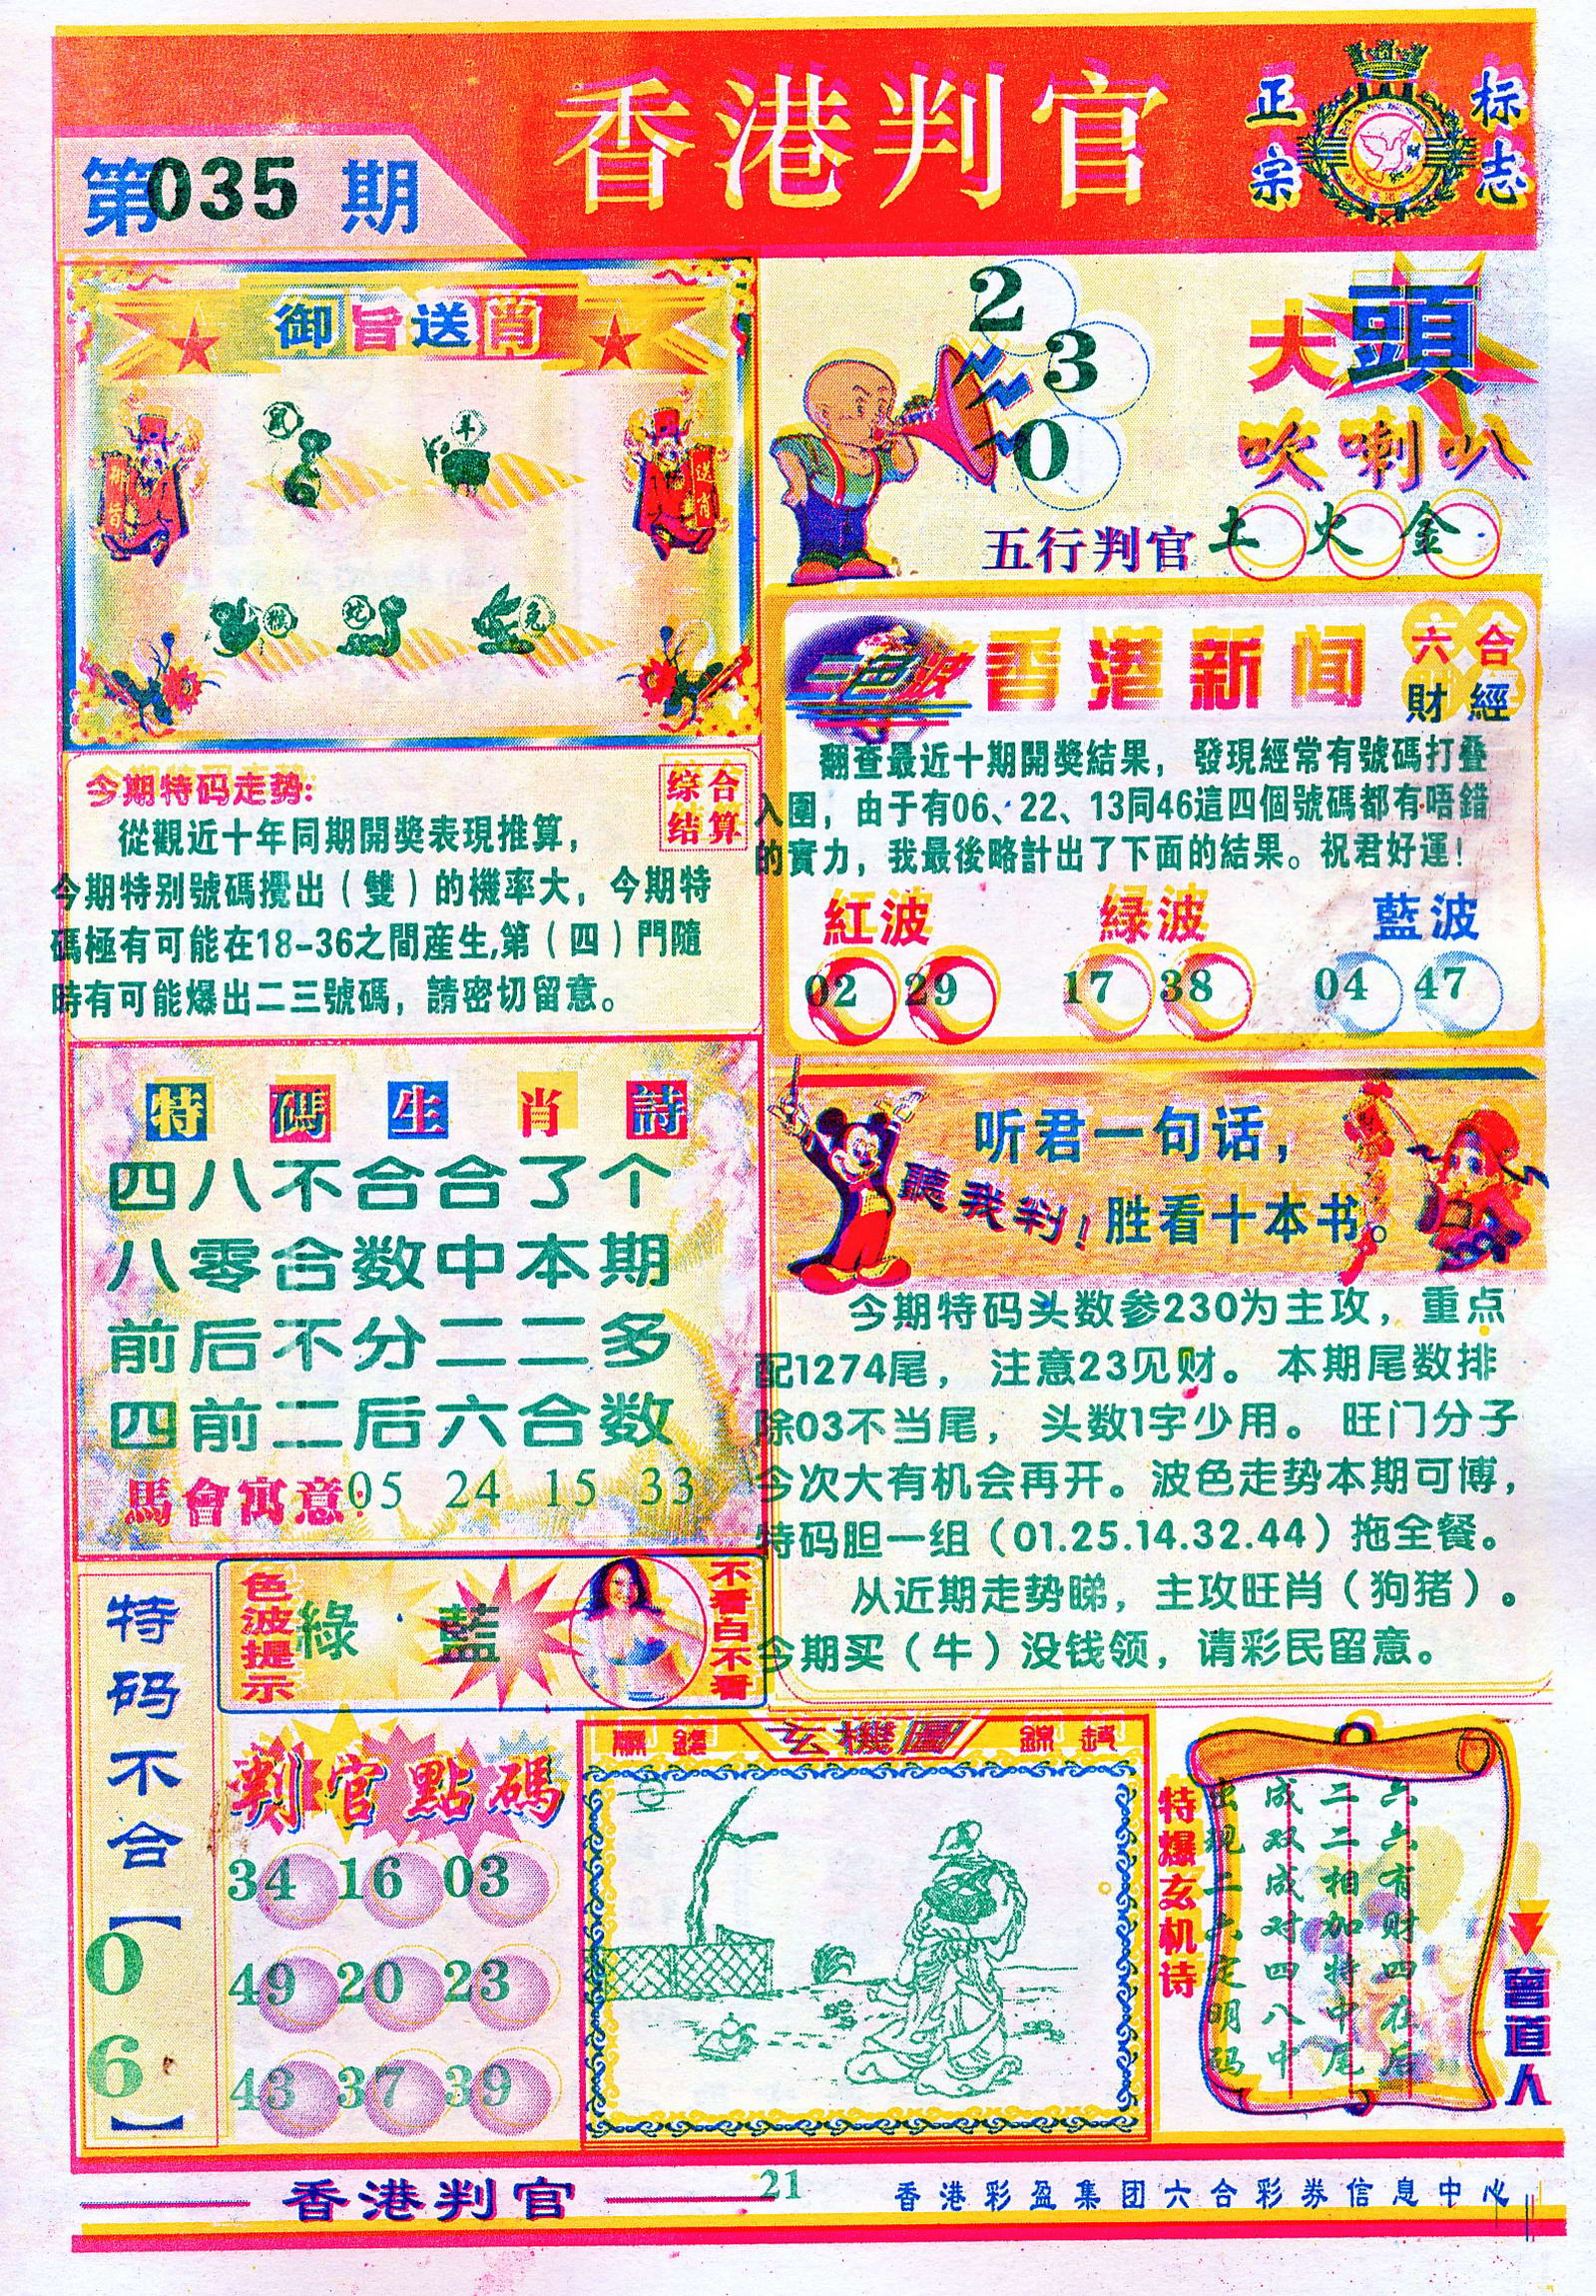 香港判官
正宗
标志
第035期
御旨送肖
鼠
羊
御旨
送肖
猴
蛇
兔
2
3
0
大頭
吹喇叭
五行判官 土 火 金
三色波
香港新闻
六合
財經
翻查最近十期開獎結果，發現經常有號碼打叠
入圍，由于有06、22、13同46這四個號碼都有唔錯
的實力，我最後略計出了下面的結果。祝君好運！
紅波 綠波 藍波
02 29 17 38 04 47
今期特码走势：
综合
结算
從觀近十年同期開獎表現推算，
今期特别號碼攪出（雙）的機率大，今期特
碼極有可能在18-36之間産生,第（四）門隨
時有可能爆出二三號碼，請密切留意。
特碼生肖詩
四八不合合了个
八零合数中本期
前后不分二二多
四前二后六合数
馬會寓意：05 24 15 33
听君一句话，
聽我判！
胜看十本书。
今期特码头数参230为主攻，重点
配1274尾，注意23见财。本期尾数排
除03不当尾，头数1字少用。旺门分子
今次大有机会再开。波色走势本期可博，
特码胆一组（01.25.14.32.44）拖全餐。
从近期走势睇，主攻旺肖（狗猪）。
今期买（牛）没钱领，请彩民留意。
色波提示
綠 藍
不看白不看
特码不合【06】
判官點碼
34 16 03
49 20 23
43 37 39
玄機圖
特爆玄机诗
六六有财四在后
二二相加特中尾
成双成对四八中
出现二六定明码
曾道人
香港判官
21
香港彩盈集团六合彩券信息中心